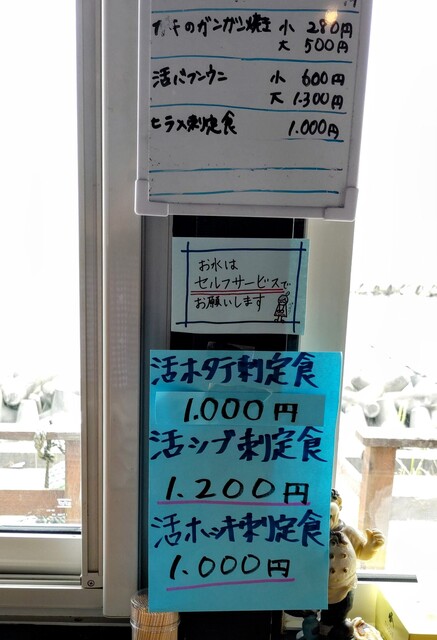 カキのガンガン焼き 小 280円
大 500円
活バフンウニ 小 600円
大 1.300円
ヒラメ刺定食 1.000円
お水は
セルフサービスで
お願いします
活ホタテ刺定食
1.000円
活ツブ刺定食
1.200円
活ホッキ刺定食
1.000円